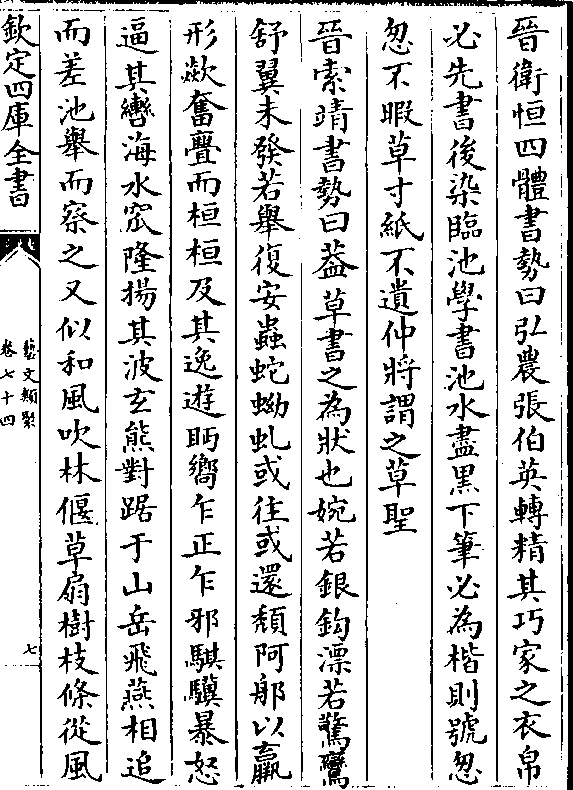 晉衛恒四體書勢曰弘農張伯英轉精其巧家之衣帛
必先書後染臨池學書池水盡黑下筆必為楷則號忽
忽不暇草寸紙不遺仲將謂之草聖
晉索靖書勢曰葢草書之為狀也婉若銀鈎漂若驚鸞
舒翼未發若舉復安蟲蛇蚴虬或往或還頹阿那以羸
形歘奮舋而桓桓及其逸遊眄嚮乍正乍邪騏驥暴怒
逼其轡海水窊隆揚其波玄熊對踞于山岳飛燕相追
而差池舉而察之又似和風吹林偃草扇樹枝條從風
欽定四庫全書
藝文類聚
卷七十四
七